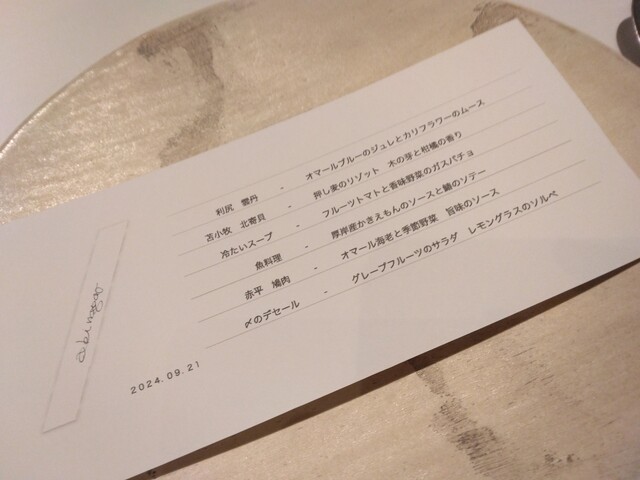 利尻 雲丹 - オマールブルーのジュレとカリフラワーのムース
苫小牧 北寄貝 - 押し麦のリゾット 木の芽と柑橘の香り
冷たいスープ - フルーツトマトと香味野菜のガスパチョ
魚料理 - 厚岸産かきえもんのソースと鱸のソテー
赤平 鳩肉 - オマール海老と季節野菜 旨味のソース
〆のデセール - グレープフルーツのサラダ レモングラスのソルベ
2024.09.21